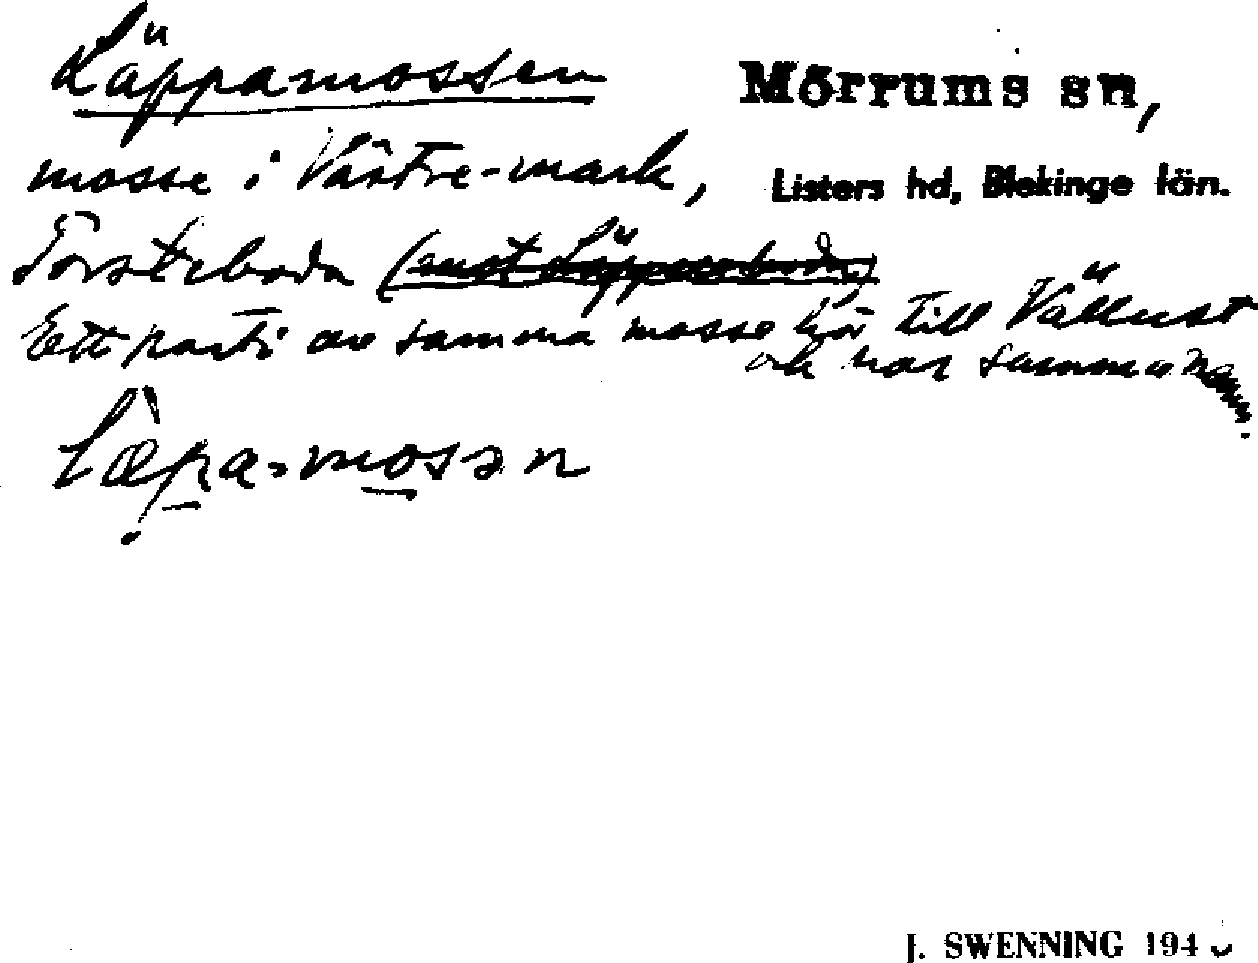 Läppamossen
Mörrums sn,
Listers hd, Blekinge län.
mosse i Västre-mark,
Torsteboda (mot Läppaboda)
Ett parti av samma mosse hör till Vällust
och har samma namn.
Læpa-mosən
J. SWENNING 194